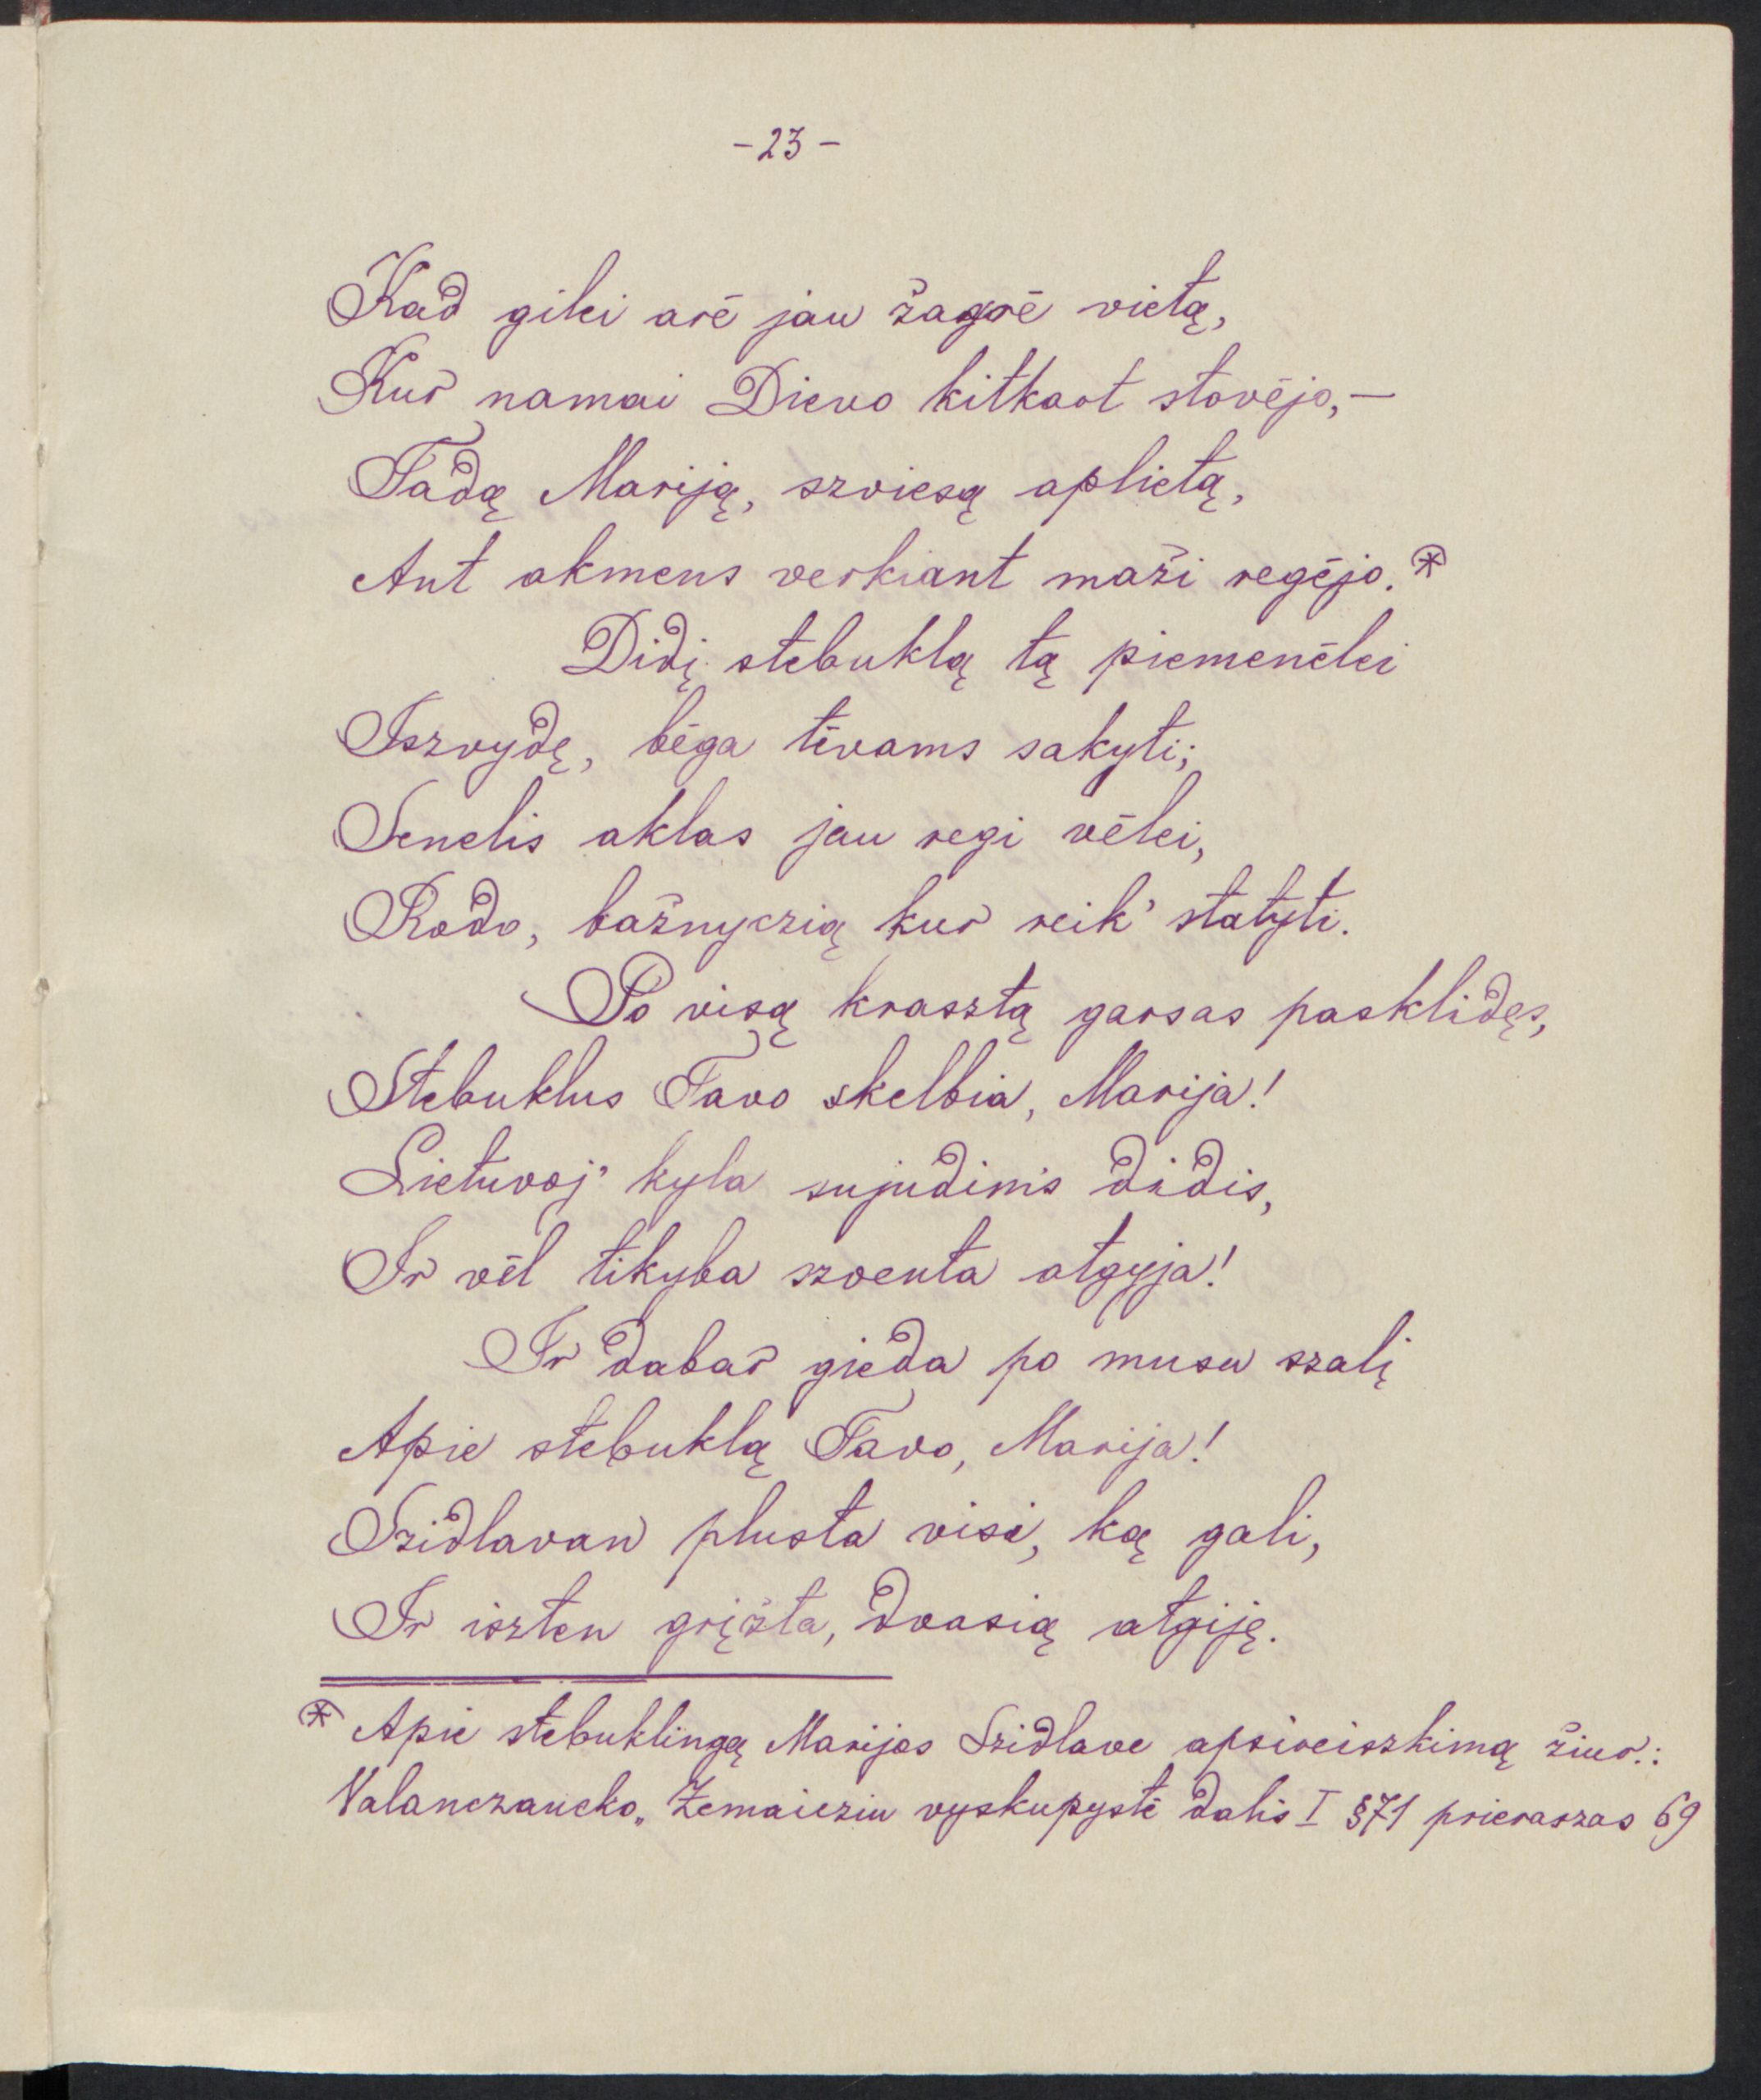 - 23 -
Kad gilei arė jau žagrė vietą,
Kur namai Dievo kitkart stovėjo, —
Tadą Mariją, szviesą aplietą,
Ant akmens verkiant maži regėjo. *
Didį stebuklą tą piemenėlei
Iszvydę, bėga tėvams sakyti;
Senelis aklas jau regi vėlei,
Rodo, bažnyczią kur reik' statyti.
Po visą krasztą garsas pasklidęs,
Stebuklus Tavo skelbia, Marija!
Lietuvoj' kyla sujudims didis,
Ir vėl tikyba szventa atgyja!
Ir dabar gieda po musu szalį
Apie stebuklą Tavo, Marija!
Szidlavan plusta visi, ką gali,
Ir iszten grįžta, dvasią atgiję.
* Apie stebuklingą Marijos Szidlave apsireiszkimą žiur.:
Valanczaucko „Žemaicziu vyskupystė dalis I §71 prieraszas 69